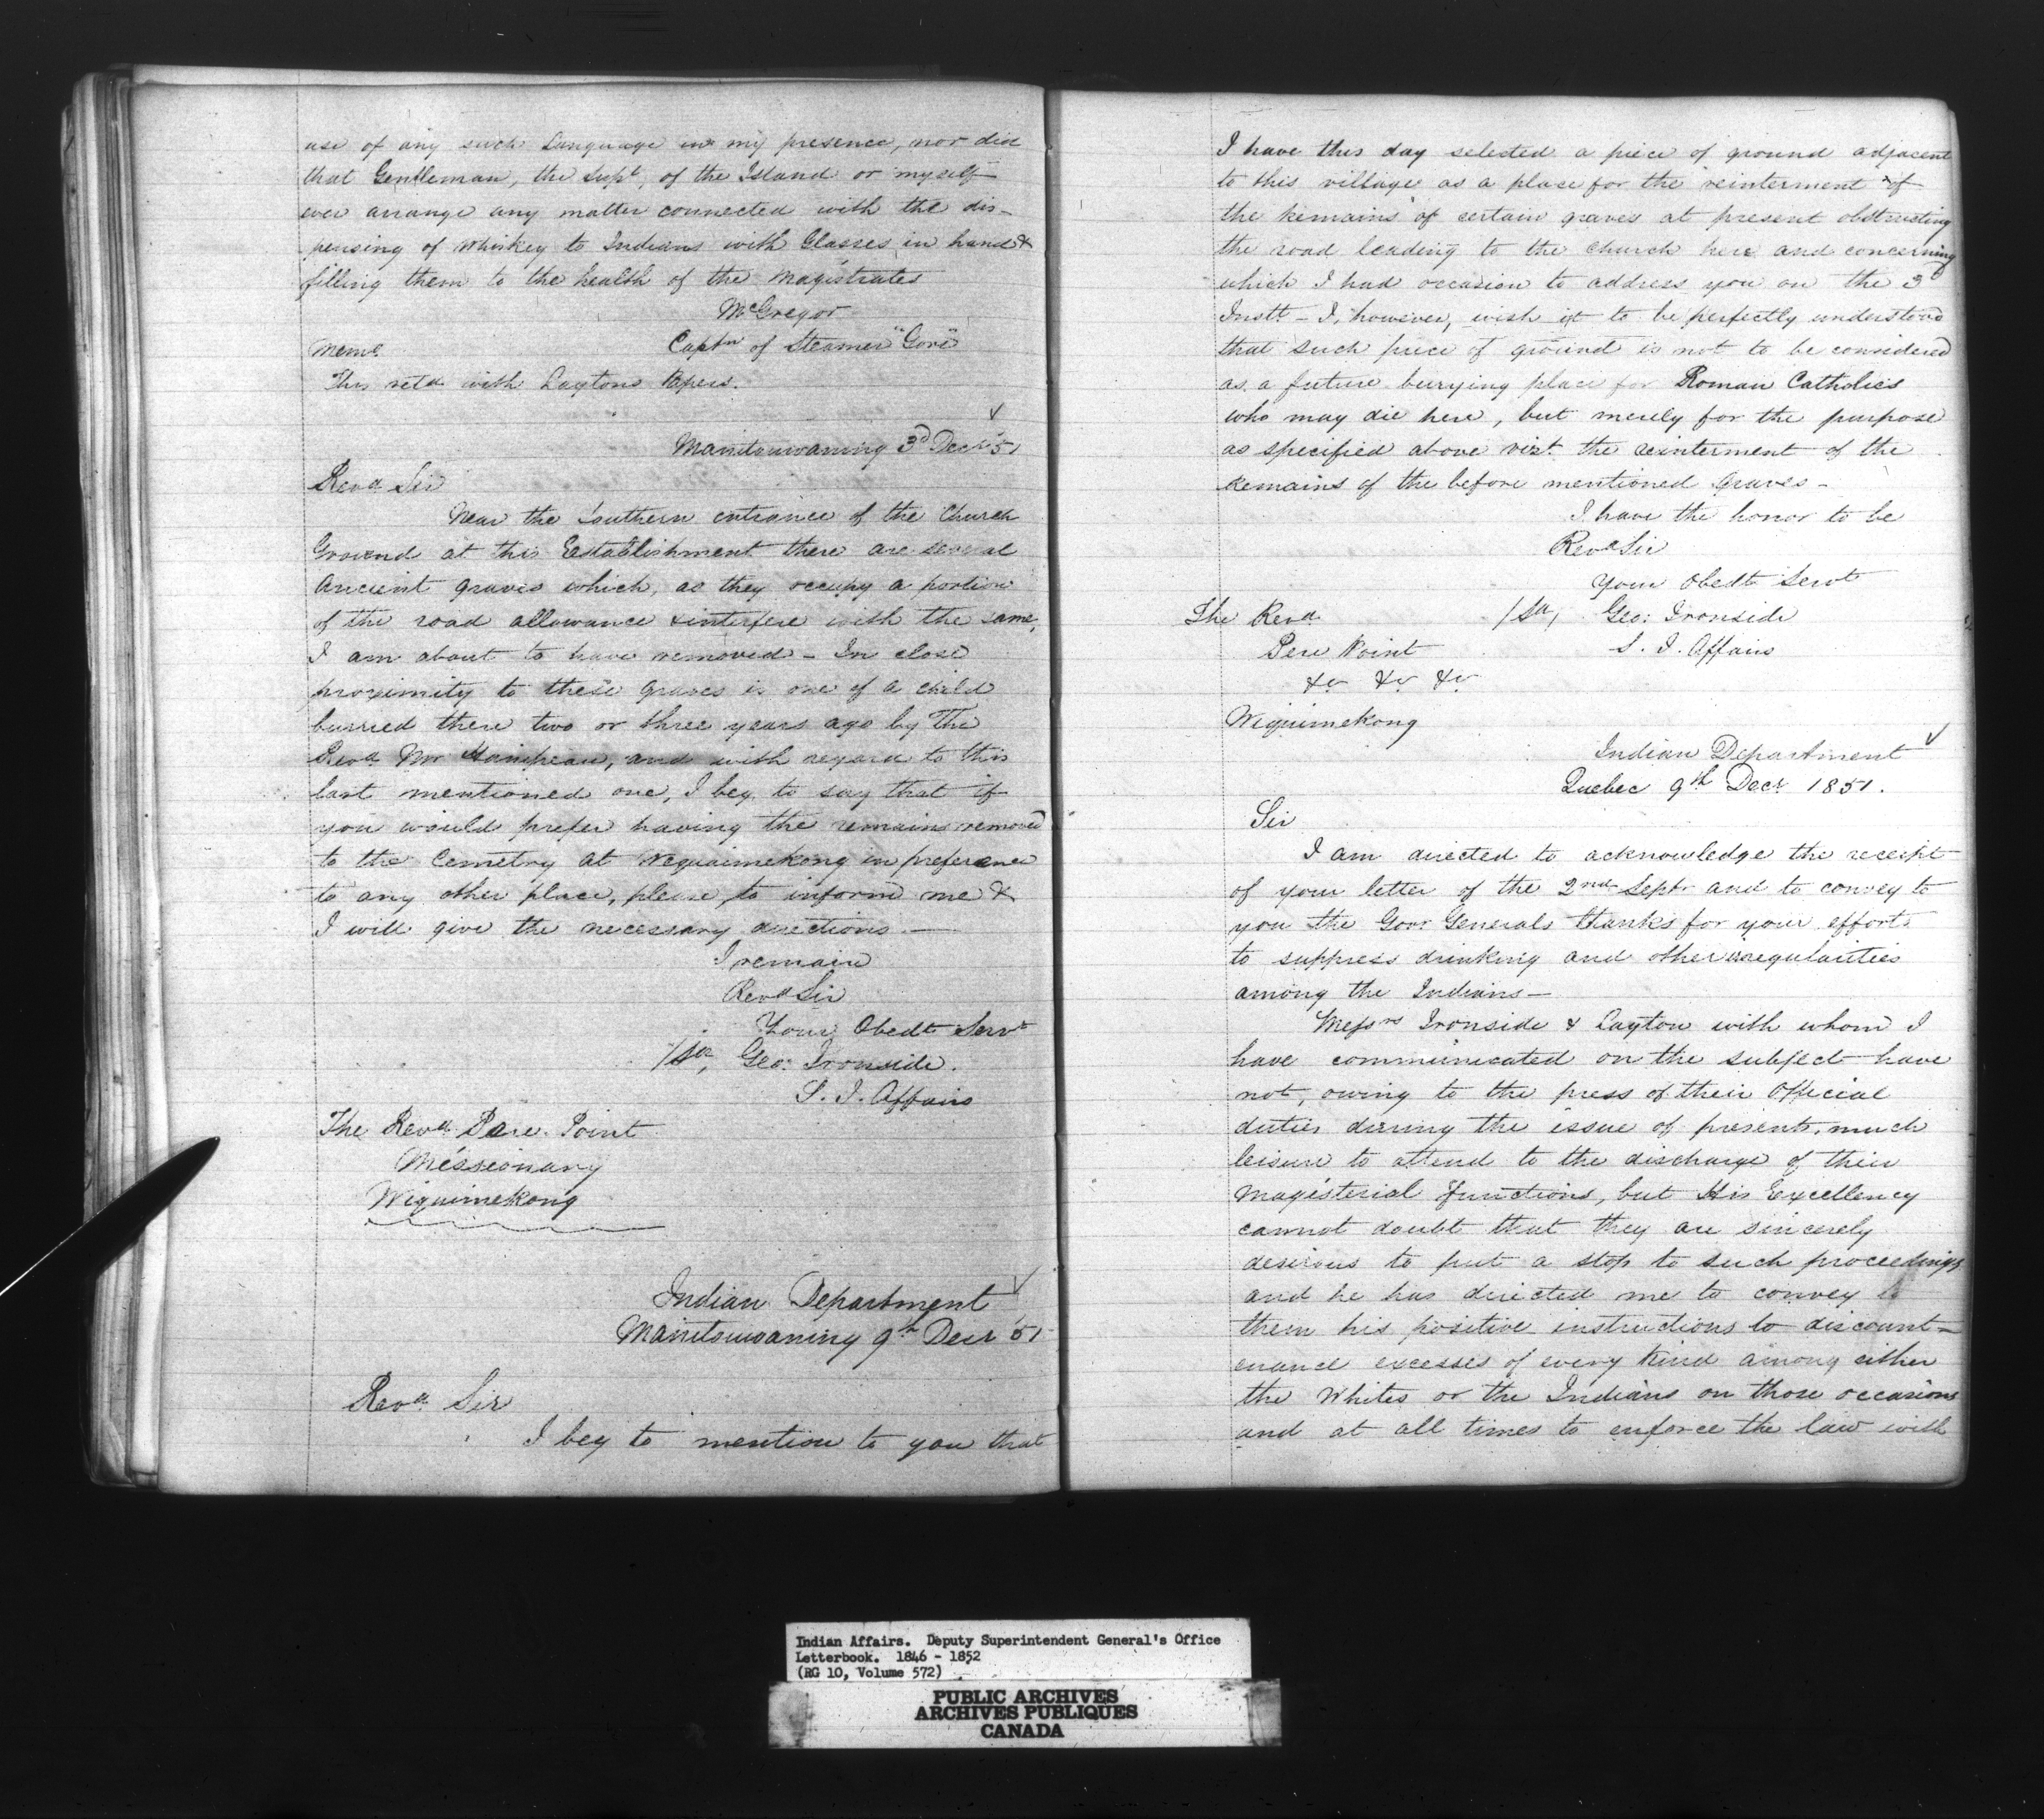 use of any such Language in my presence, nor did
that Gentleman, the Supt, of the Island or myself
ever arrange any matter connected with the dis-
pensing of Whiskey to Indians with Glasses in hand &
filling them to the health of the Magistrates
McGregor
Captn of Steamer "Gore"
Memo
This retd with Laytons Papers.
Manitouwaning 3d Decr '51
Revd Sir
Near the Southern entrance of the Church
Ground at this Establishment there are several
Ancient graves which, as they occupy a portion
of the road allowance & interfere with the same,
I am about to have removed - In close
proximity to these graves is one of a child
burried there two or three years ago by The
Revd Mr and with regard to this
last mentioned one, I beg to say that if
you would prefer having the remains removed
to the Cemetry at Wequimekong in preference
to any other place, please, to inform me &
I will give the necessary directions. —
I remain
Revd Sir
Your Obedt Servt
Geo: Ironside.
S. I. Affairs
The Revd Pere Point
Missionary
Wiquimekong
Indian Department
Manitouwaning 9th Decr '51
Revd Sir
I beg to mention to you that
I have this day selected a piece of ground adjacent
to this village as a place for the reinterment of
the remains of certain graves at present obstructing
the road leading to the church here and concerning
which I had occasion to address you on the 3d
Instt - I, however, wish it to be perfectly understood
that such piece of ground is not to be considered
as a future burying place for Roman Catholics
who may die here, but merely for the purpose
as specified above vizt the reinterment of the
remains of the before mentioned Graves -
I have the honor to be
Revd Sir
Your Obedt Servt
The Revd
Geo: Ironside
Pere Point
S. I. Affairs
&c &c &c
Wiquimekong
Indian Department
Quebec 9th Decr 1851.
Sir
I am directed to acknowledge the receipt
of your letter of the 2nd Septr and to convey to
you the Govr Generals thanks for your efforts
to suppress drinking and other irregularities
among the Indians —
Messrs Ironside & Layton with whom I
have communicated on the subject have
not, owing to the press of their Official
duties during the issue of presents, much
leisure to attend to the discharge of their
Magisterial functions, but His Excellency
cannot doubt that they are sincerely
desirous to put a stop to such proceedings
and he has directed me to convey to
them his positive instructions to discount-
enance excesses of every kind among either
the Whites or the Indians on those occasions
and at all times to enforce the law with
Indian Affairs. Deputy Superintendent General's Office
Letterbook. 1846 - 1852
(RG 10, Volume 572)
PUBLIC ARCHIVES
ARCHIVES PUBLIQUES
CANADA